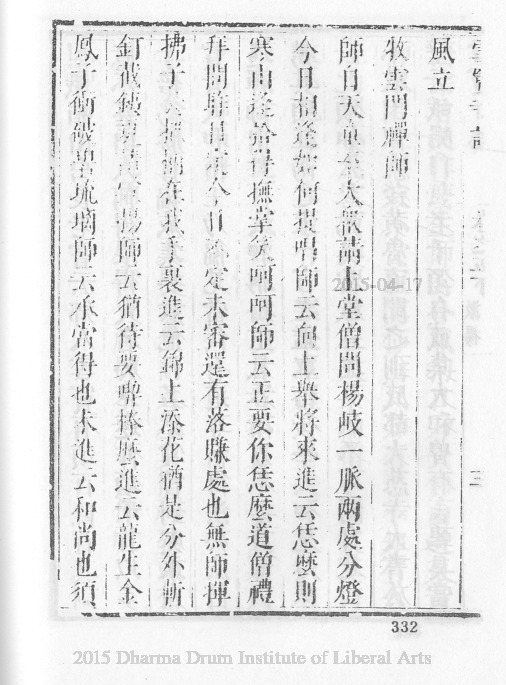 風立
牧雲門禪師
師日天童至大衆請上堂僧問楊岐一脈兩處分燈
今日相逢如何提唱師云向上舉將來進云恁麽則
寒山逢拾得撫掌笑呵呵師云正要你恁麽道僧禮
拜問
定未審還有落賺處也無師揮
拂子
在我手裏進云錦上添花猶是分外斬
釘截鐵
師云猶待要喫棒麽進云龍生金
鳳子衝破碧琉璃師云承當得也未進云和尚也須
三
2015-04-17
332
2015 Dharma Drum Institute of Liberal Arts